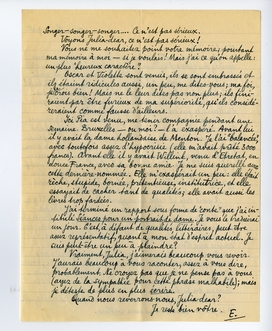 Songer-songer-songer.... Ce n'est pas sérieux.
Voyons Julia-dear, ce n'est pas sérieux!
Vous ne me souhaitez point votre mémoire; pourtant
ma mémoire à moi — si je voulais! Mais j'ai ce qu'on appelle:
un plus heureux caractère?
Oscar et Violette sont venus, ils se sont embrassés et
ils étaient ridicules aussi, un peu, me dites-vous; ma foi,
tiron bien! Mais ne le leur dites pas non plus; ils fini-
raient par être furieux de ma supériorité, qu'ils considé-
reraient comme fausse d'ailleurs.
Ici Pia est venu, me tenir compagnie pendant une
semaine. Bruxelles — ou moi? — l'a exaspéré. Avant lui
il y avait la dame hollandaise de Menton. Je l'ai "balancée"
avec toutefois assez d'hypocrisie (elle m'avait prêté 3000
francs). Avant elle il y avait Willink, venu d'Elstrat, en
douce France, avec sa bonne amie. Je me suis querellé sur
cette dernière-nommée. Elle m'exaspérait un peu: elle était
rêche, stupide, bornée, prétentieuse, institutrice, et elle
essayait de cacher tant de qualités; elle avait aussi les
lèvres trop fardées.
J'ai terminé un rapport sous forme de conte que j'ai in-
titulé: pour un portrait de dame. Je vous le enverrai
un jour. C'est, à défaut de qualités littéraires, peut être
assez représentatif, quant à mon état d'esprit actuel. Je
suis peut-être un peu à plaindre?
Vraiment, Julia, j'aimerais beaucoup vous revoir.
J'aurais beaucoup à vous raconter, assez à vous dire,
probablement. Ne croyez pas que je ne pense pas à vous
(ayez de la sympathie pour cette phrase malhabile); mais
je déteste de plus en plus écrire.
Quand nous reverrons-nous, Julia-dear?
Je reste bien vôtre. E.